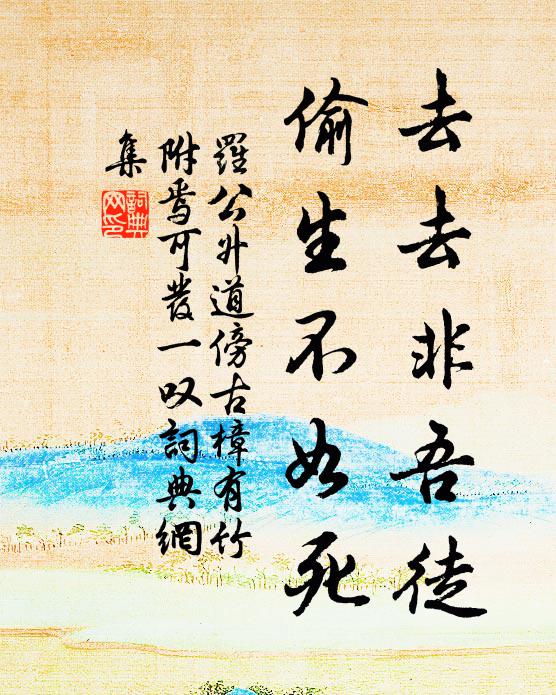 去去非吾徒
偷生不如死
羅公外道傍古樟有竹
附焉可發一叹詞典網
集
詞典
网印